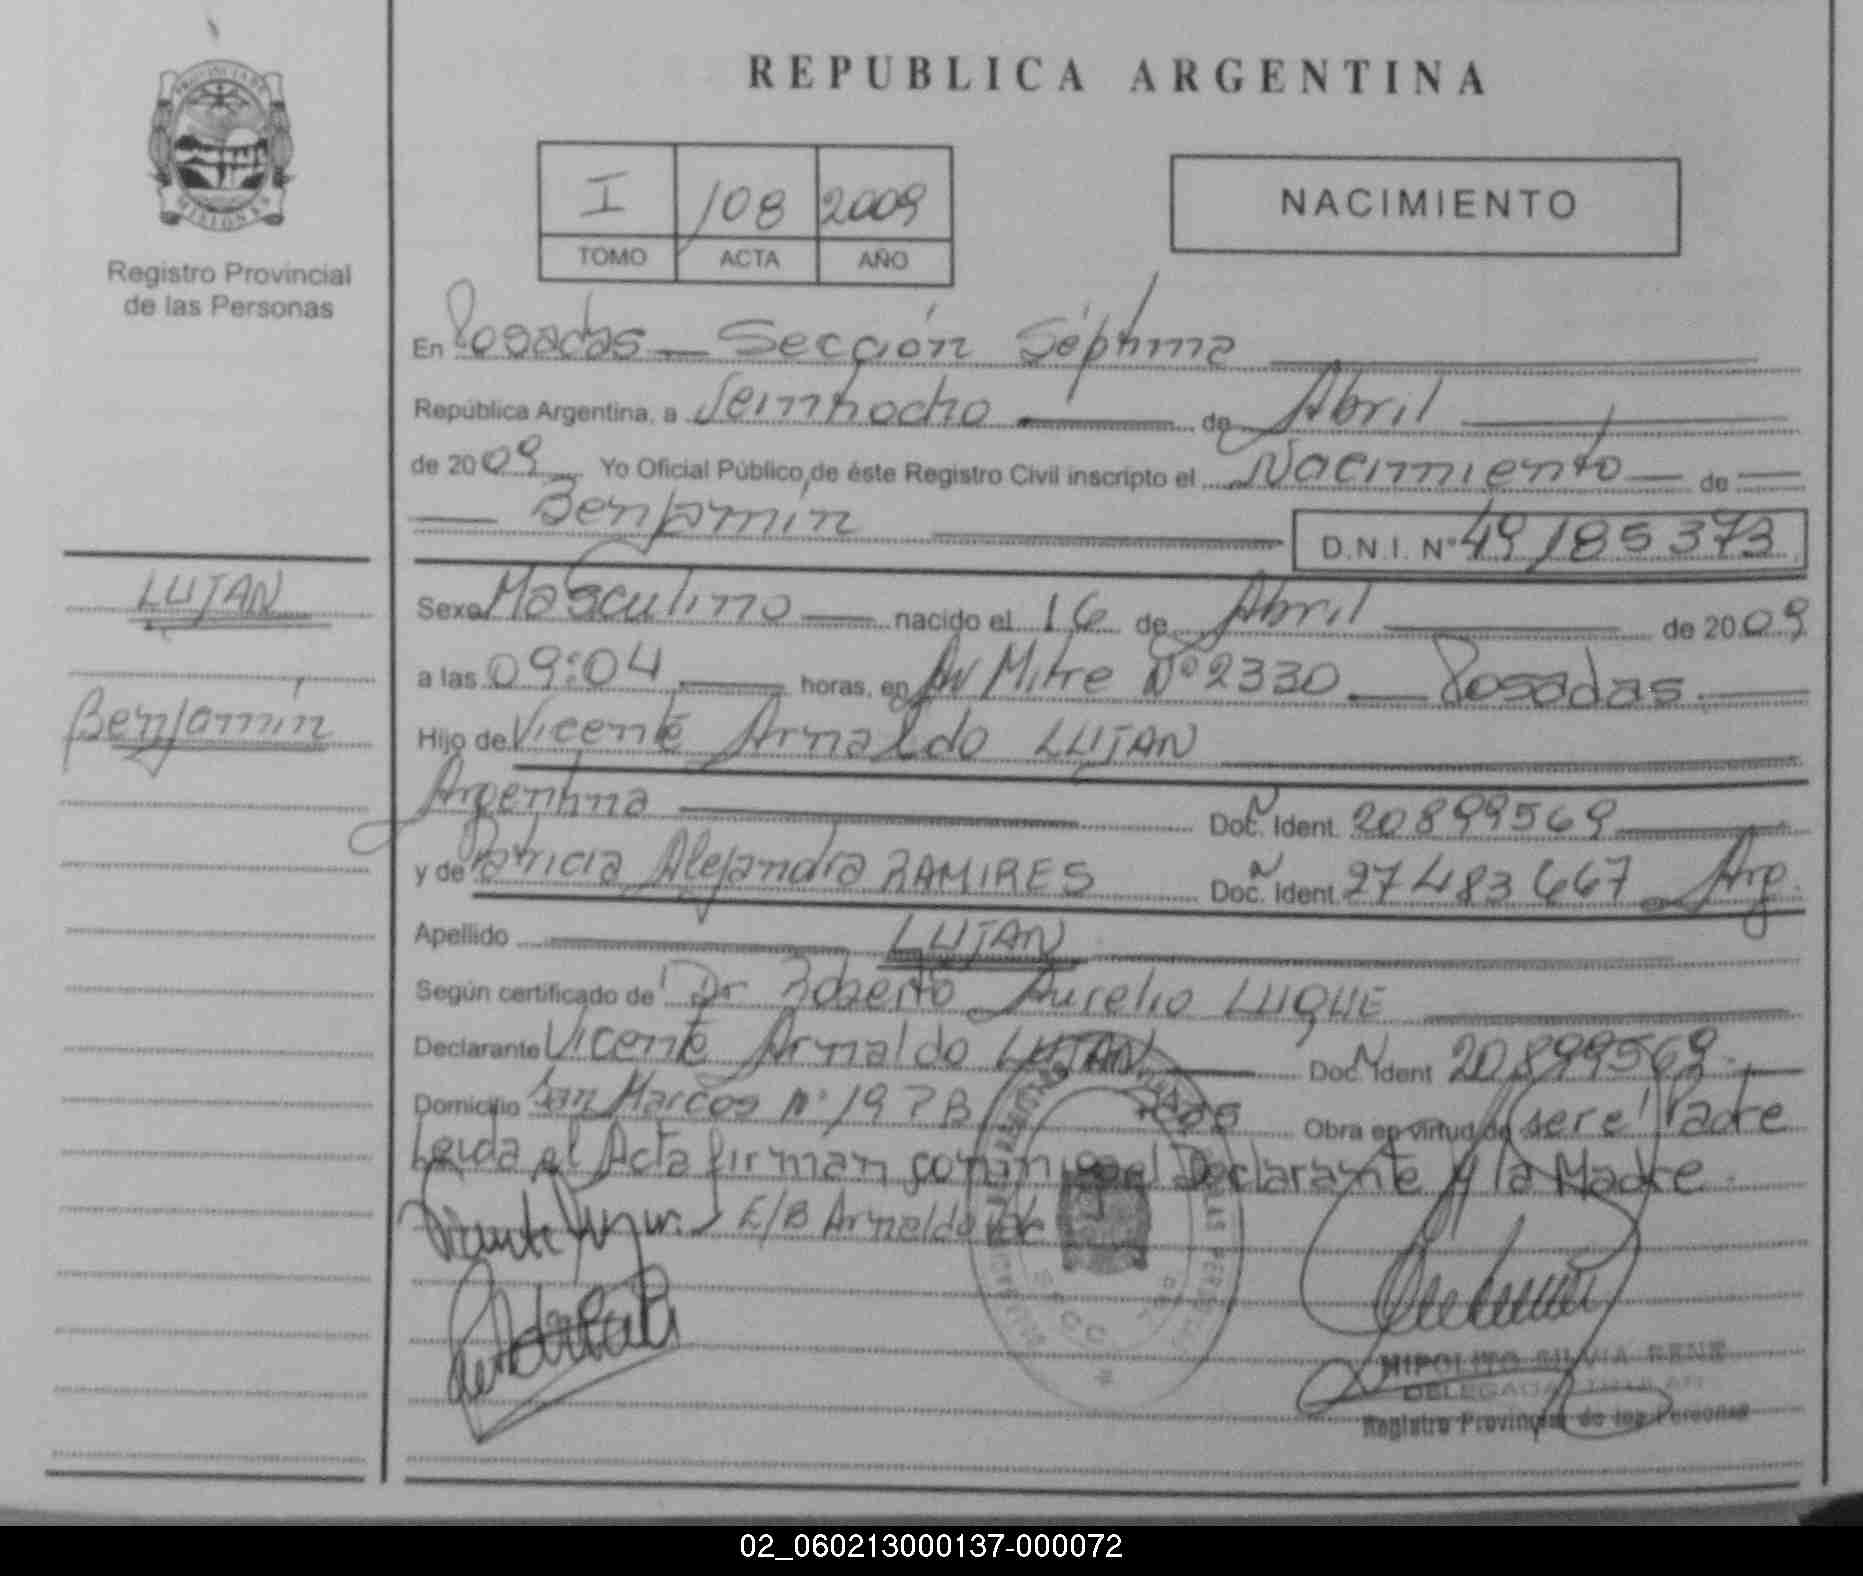 REPUBLICA ARGENTINA
PROVINCIA DE MISIONES
Registro Provincial
de las Personas
I 108 2009
TOMO ACTA AÑO
NACIMIENTO
En Posadas - Sección Séptima
República Argentina, a Veintiocho de Abril
de 2009 Yo Oficial Público de éste Registro Civil inscripto el Nacimiento de
Benjamín
D.N.I. Nº 49185373
LUJAN
Benjamín
Sexo Masculino nacido el 16 de Abril de 2009
a las 09:04 horas, en Av Mitre Nº 2330 Posadas
Hijo de Vicente Arnaldo LUJAN
Argentina Doc. Ident. 20899569
y de Patricia Alejandra RAMIRES Doc. Ident. 27483667 Arg.
Apellido LUJAN
Según certificado de Dr Roberto Aurelio LUQUE
Declarante Vicente Arnaldo LUJAN Doc. Ident 20899569
Domicilio San Marcos Nº 1978 Obra en virtud de ser el Padre
Leida el Acta firman conmigo el Declarante y la Madre
E/B Arnaldo Vale
HIPOLITO SILVIA RENE
DELEGADA TITULAR
Registro Provincial de las Personas
02_060213000137-000072